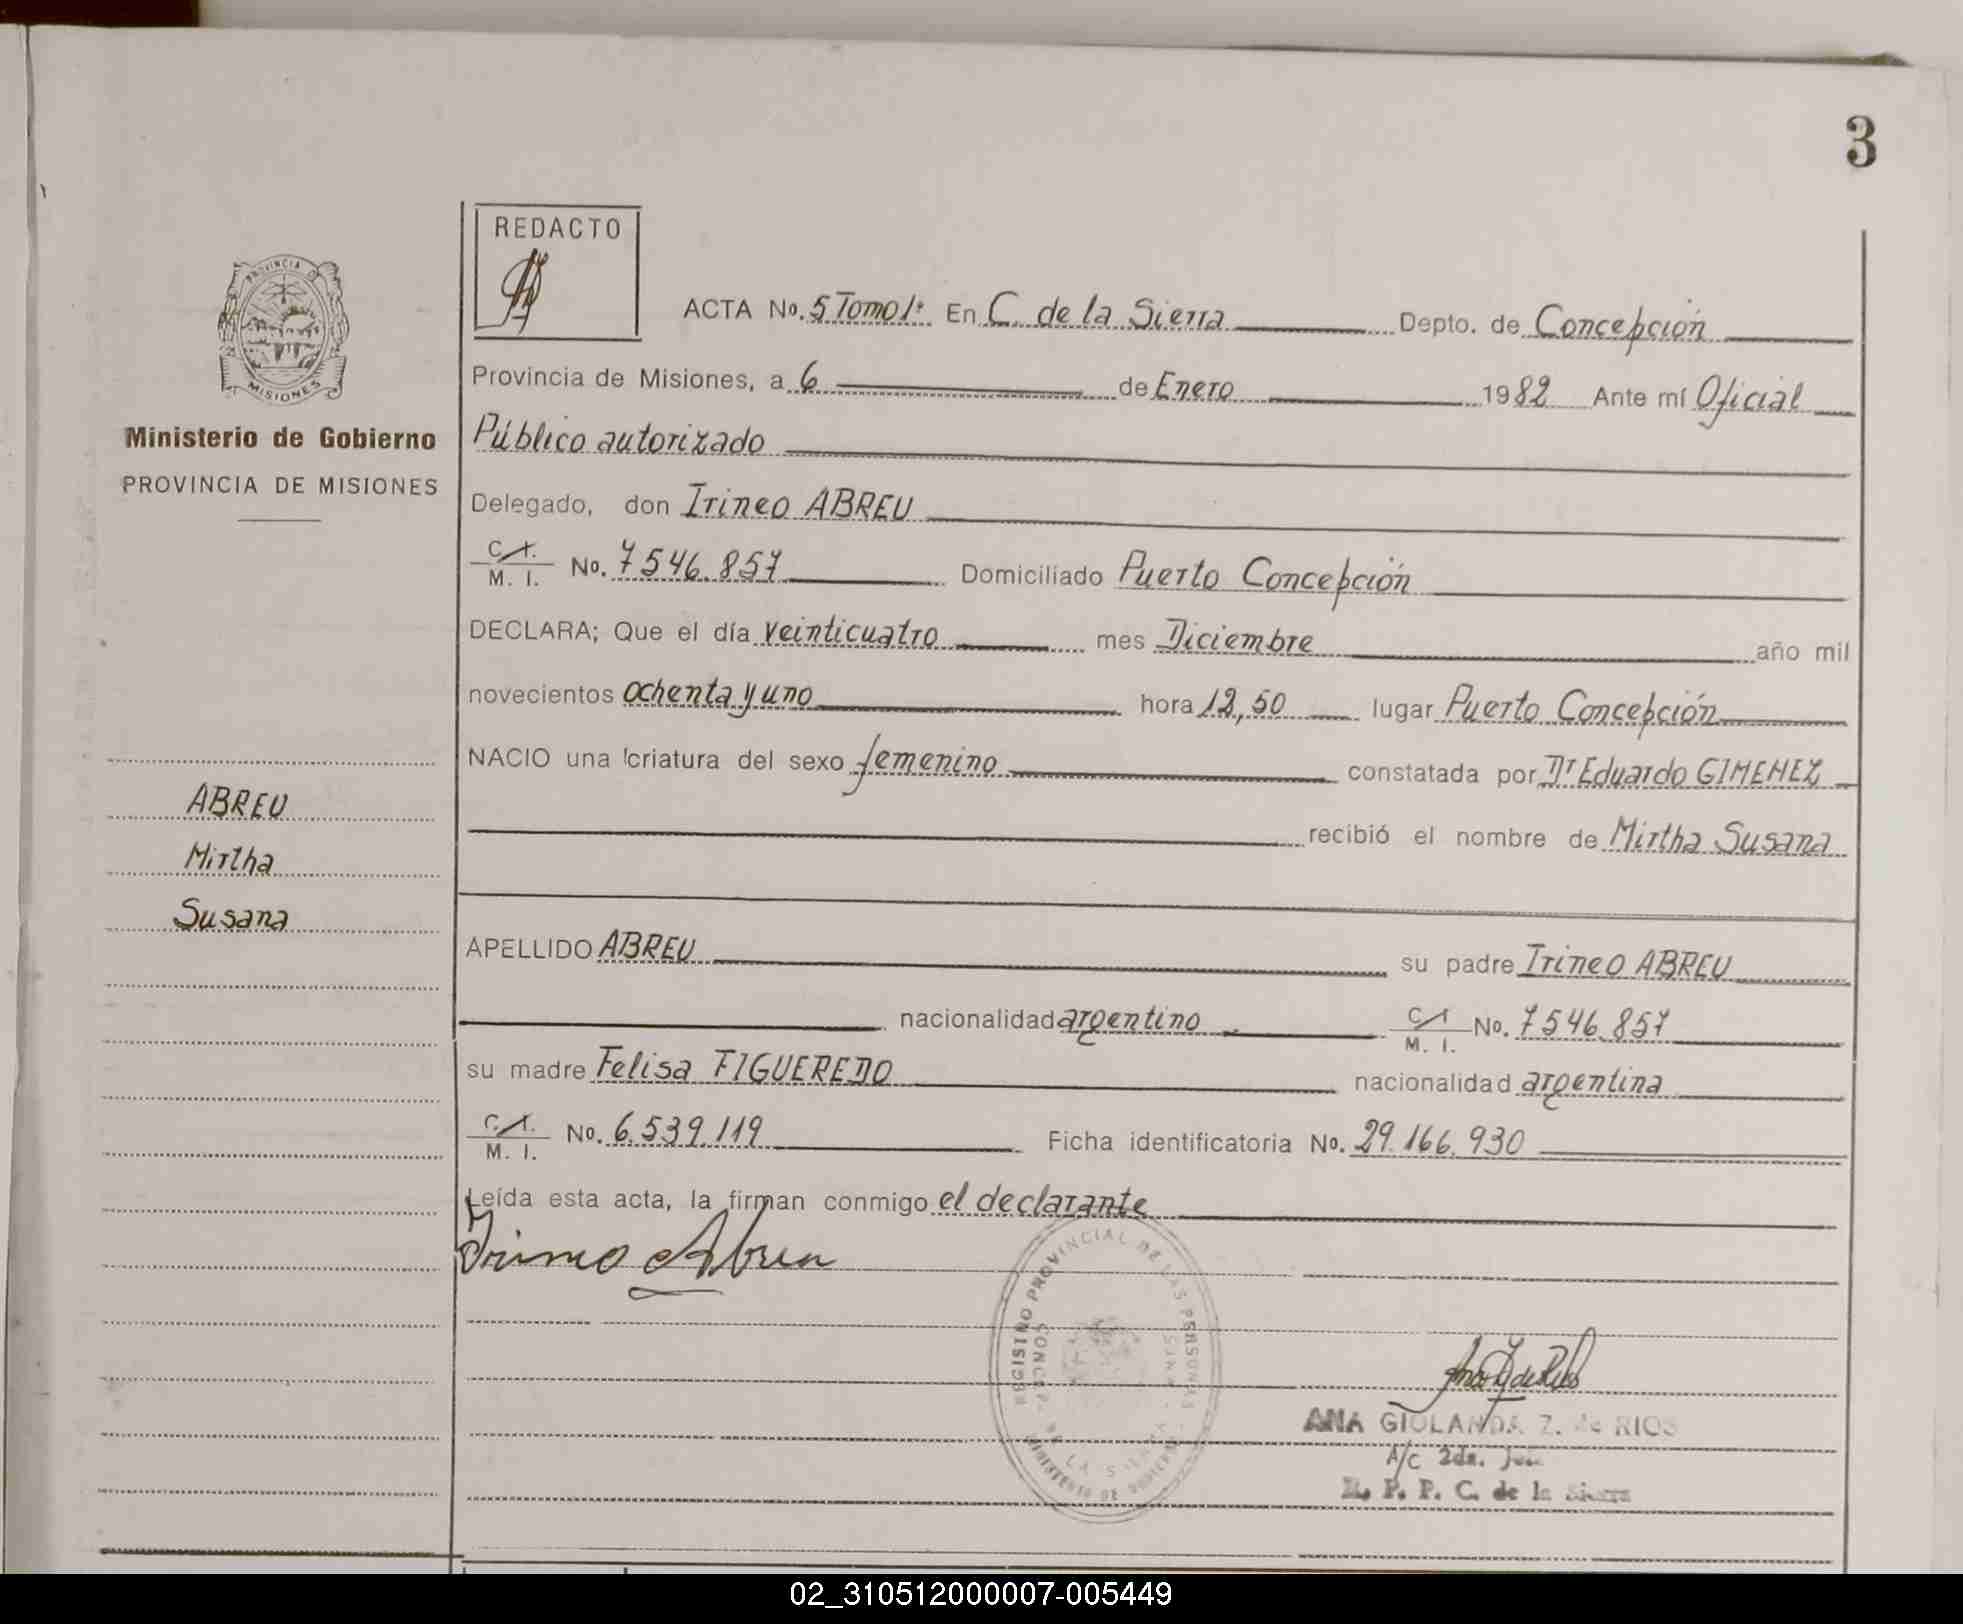 3
REDACTO
PROVINCIA DE
MISIONES
Ministerio de Gobierno
PROVINCIA DE MISIONES
ABREU
Mirtha
Susana
ACTA No. 5 Tomo 1º En C. de la Sierra Depto. de Concepción
Provincia de Misiones, a 6 de Enero 1982 Ante mí Oficial
Público autorizado
Delegado, don Irineo ABREU
C. I.
M. I. No. 7546.857 Domiciliado Puerto Concepción
DECLARA; Que el día veinticuatro mes Diciembre año mil
novecientos ochenta y uno hora 12,50 lugar Puerto Concepción
NACIO una criatura del sexo femenino constatada por Dr Eduardo GIMENEZ
recibió el nombre de Mirtha Susana
APELLIDO ABREU su padre Irineo ABREU
nacionalidad argentino C. I. M. I. No. 7546.857
su madre Felisa FIGUEREDO nacionalidad argentina
C. I.
M. I. No. 6.539.119 Ficha identificatoria No. 29.166.930
Leída esta acta, la firman conmigo el declarante
Irineo Abreu
REGISTRO PROVINCIAL DE LAS PERSONAS
ANA GIOLANDA Z. de RIOS
A/C 2da.
R. P. P. C. de la Sierra
02_310512000007-005449